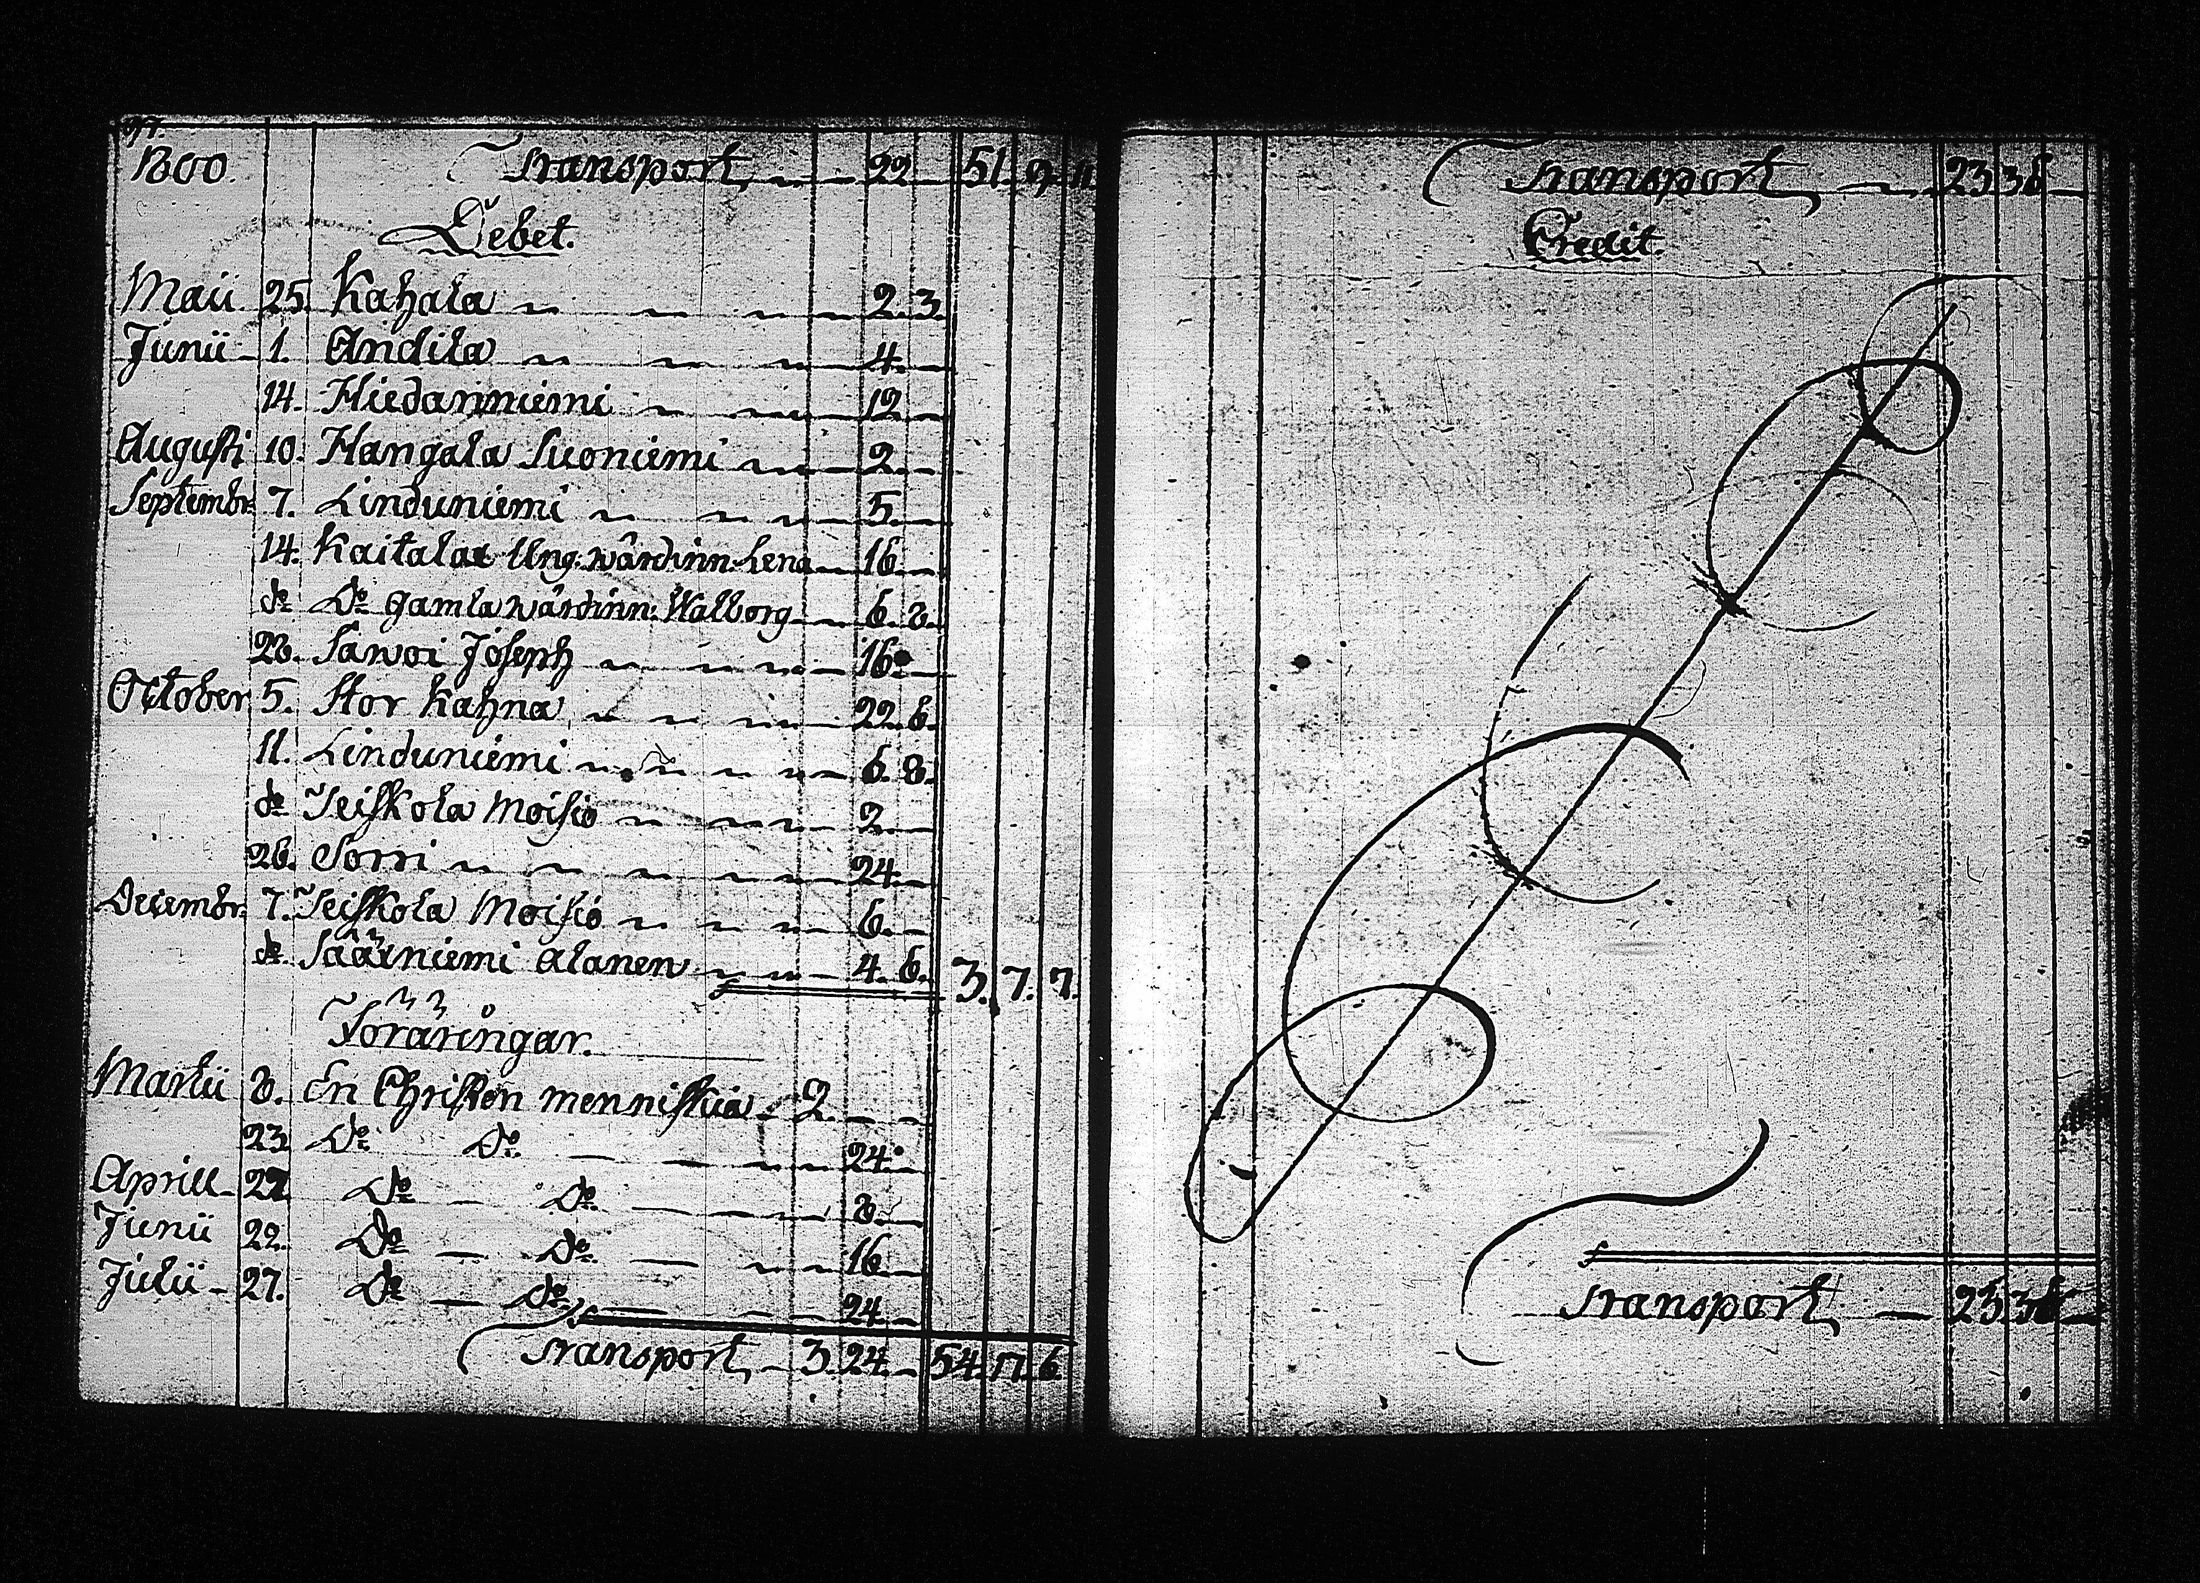 1800. Transport 22 51. 9. 11
Debet.
Maii 25. Kahala 2. 3.
Junii 1. Andila 4.
14. Hiedanniemi 12
Augusti 10. Hangala Suoniemi 2.
Septembr. 7. Linduniemi 5.
14. Kaitalax Ung. wärdinn. Lena 16
do Do gamla wärdinn: Walborg 6. 8.
28. Sawoi Joseph 16.
October 5. Stor Kahna 22. 6.
11. Linduniemi 6. 8.
do Teiskola Moisio 2.
26. Sorri 24.
Decembr. 7. Teiskola Moisio 6.
do Säärniemi Alanen 4. 6. 3. 7. 7.
Föräringar.
Martii 8. En Christen menniskia 2.
23. Do Do 24.
Aprill 22 Do Do 8.
Junii 22. Do Do 16
Julii 27. Do Do 24.
Transport 3. 24. 54. 17. 6.
Transport 23 36
Credit.
Transport 23. 36